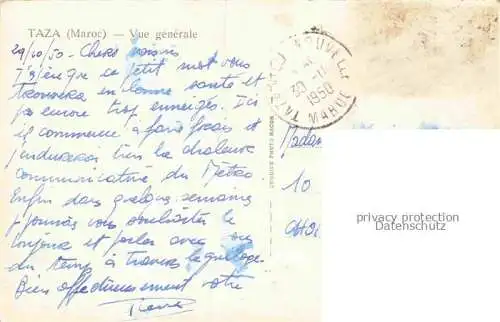 TAZA (Maroc) — Vue générale
29/10/50 - Chers voisins
J'espère que ce petit mot vous
trouvera en bonne santé et
pas encore trop enneigés. Ici
il commence à faire frais et
j'endurerai très la chaleur
communicative du Métro
Enfin dans quelques semaines
je pourrais vous souhaiter le
bonjour et parler avec vous
du temps à travers le grillage.
Bien affectueusement votre
Pierre
TAZA NOUVELLE
30 -11
1950
MAROC
Madam
10
privacy protection
Datenschutz